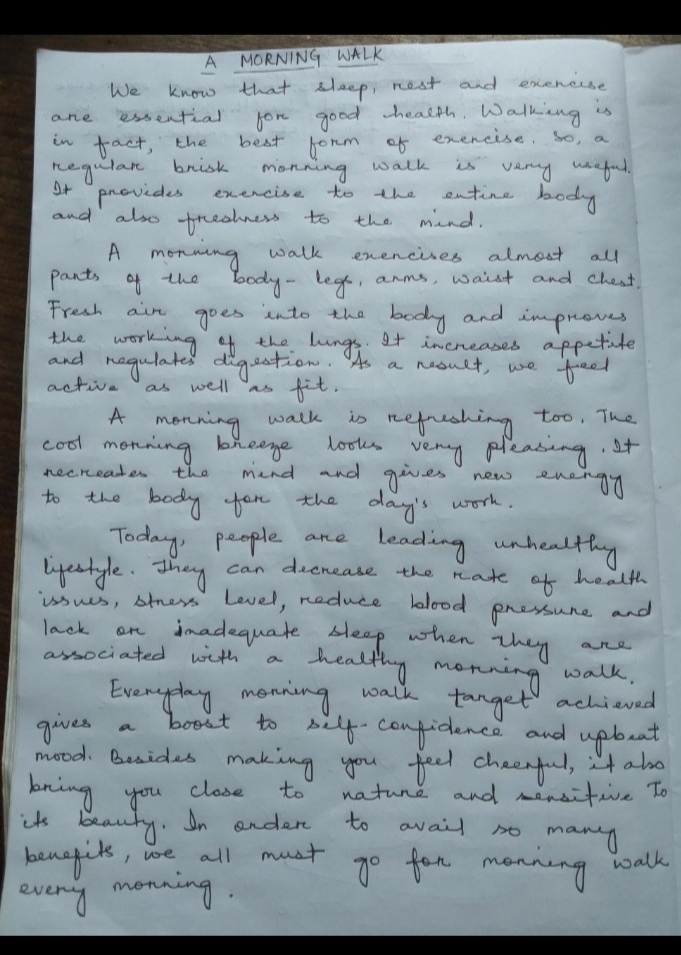 A MORNING WALK
We know that sleep, rest and exercise
are essential for good health. Walking is
in fact, the best form of exercise. So, a
regular brisk morning walk is very useful.
It provides exercise to the entire body
and also freshness to the mind.
A morning walk exercises almost all
parts of the body - legs, arms, waist and chest.
Fresh air goes into the body and improves
the working of the lungs. It increases appetite
and regulates digestion. As a result, we feel
active as well as fit.
A morning walk is refreshing too. The
cool morning breeze looks very pleasing. It
recreates the mind and gives new energy
to the body for the day's work.
Today, people are leading unhealthy
lifestyle. They can decrease the rate of health
issues, stress level, reduce blood pressure and
lack or inadequate sleep when they are
associated with a healthy morning walk.
Everyday morning walk target achieved
gives a boost to self-confidence and upbeat
mood. Besides making you feel cheerful, it also
bring you close to nature and sensitive to
its beauty. In order to avail so many
benefits, we all must go for morning walk
every morning.